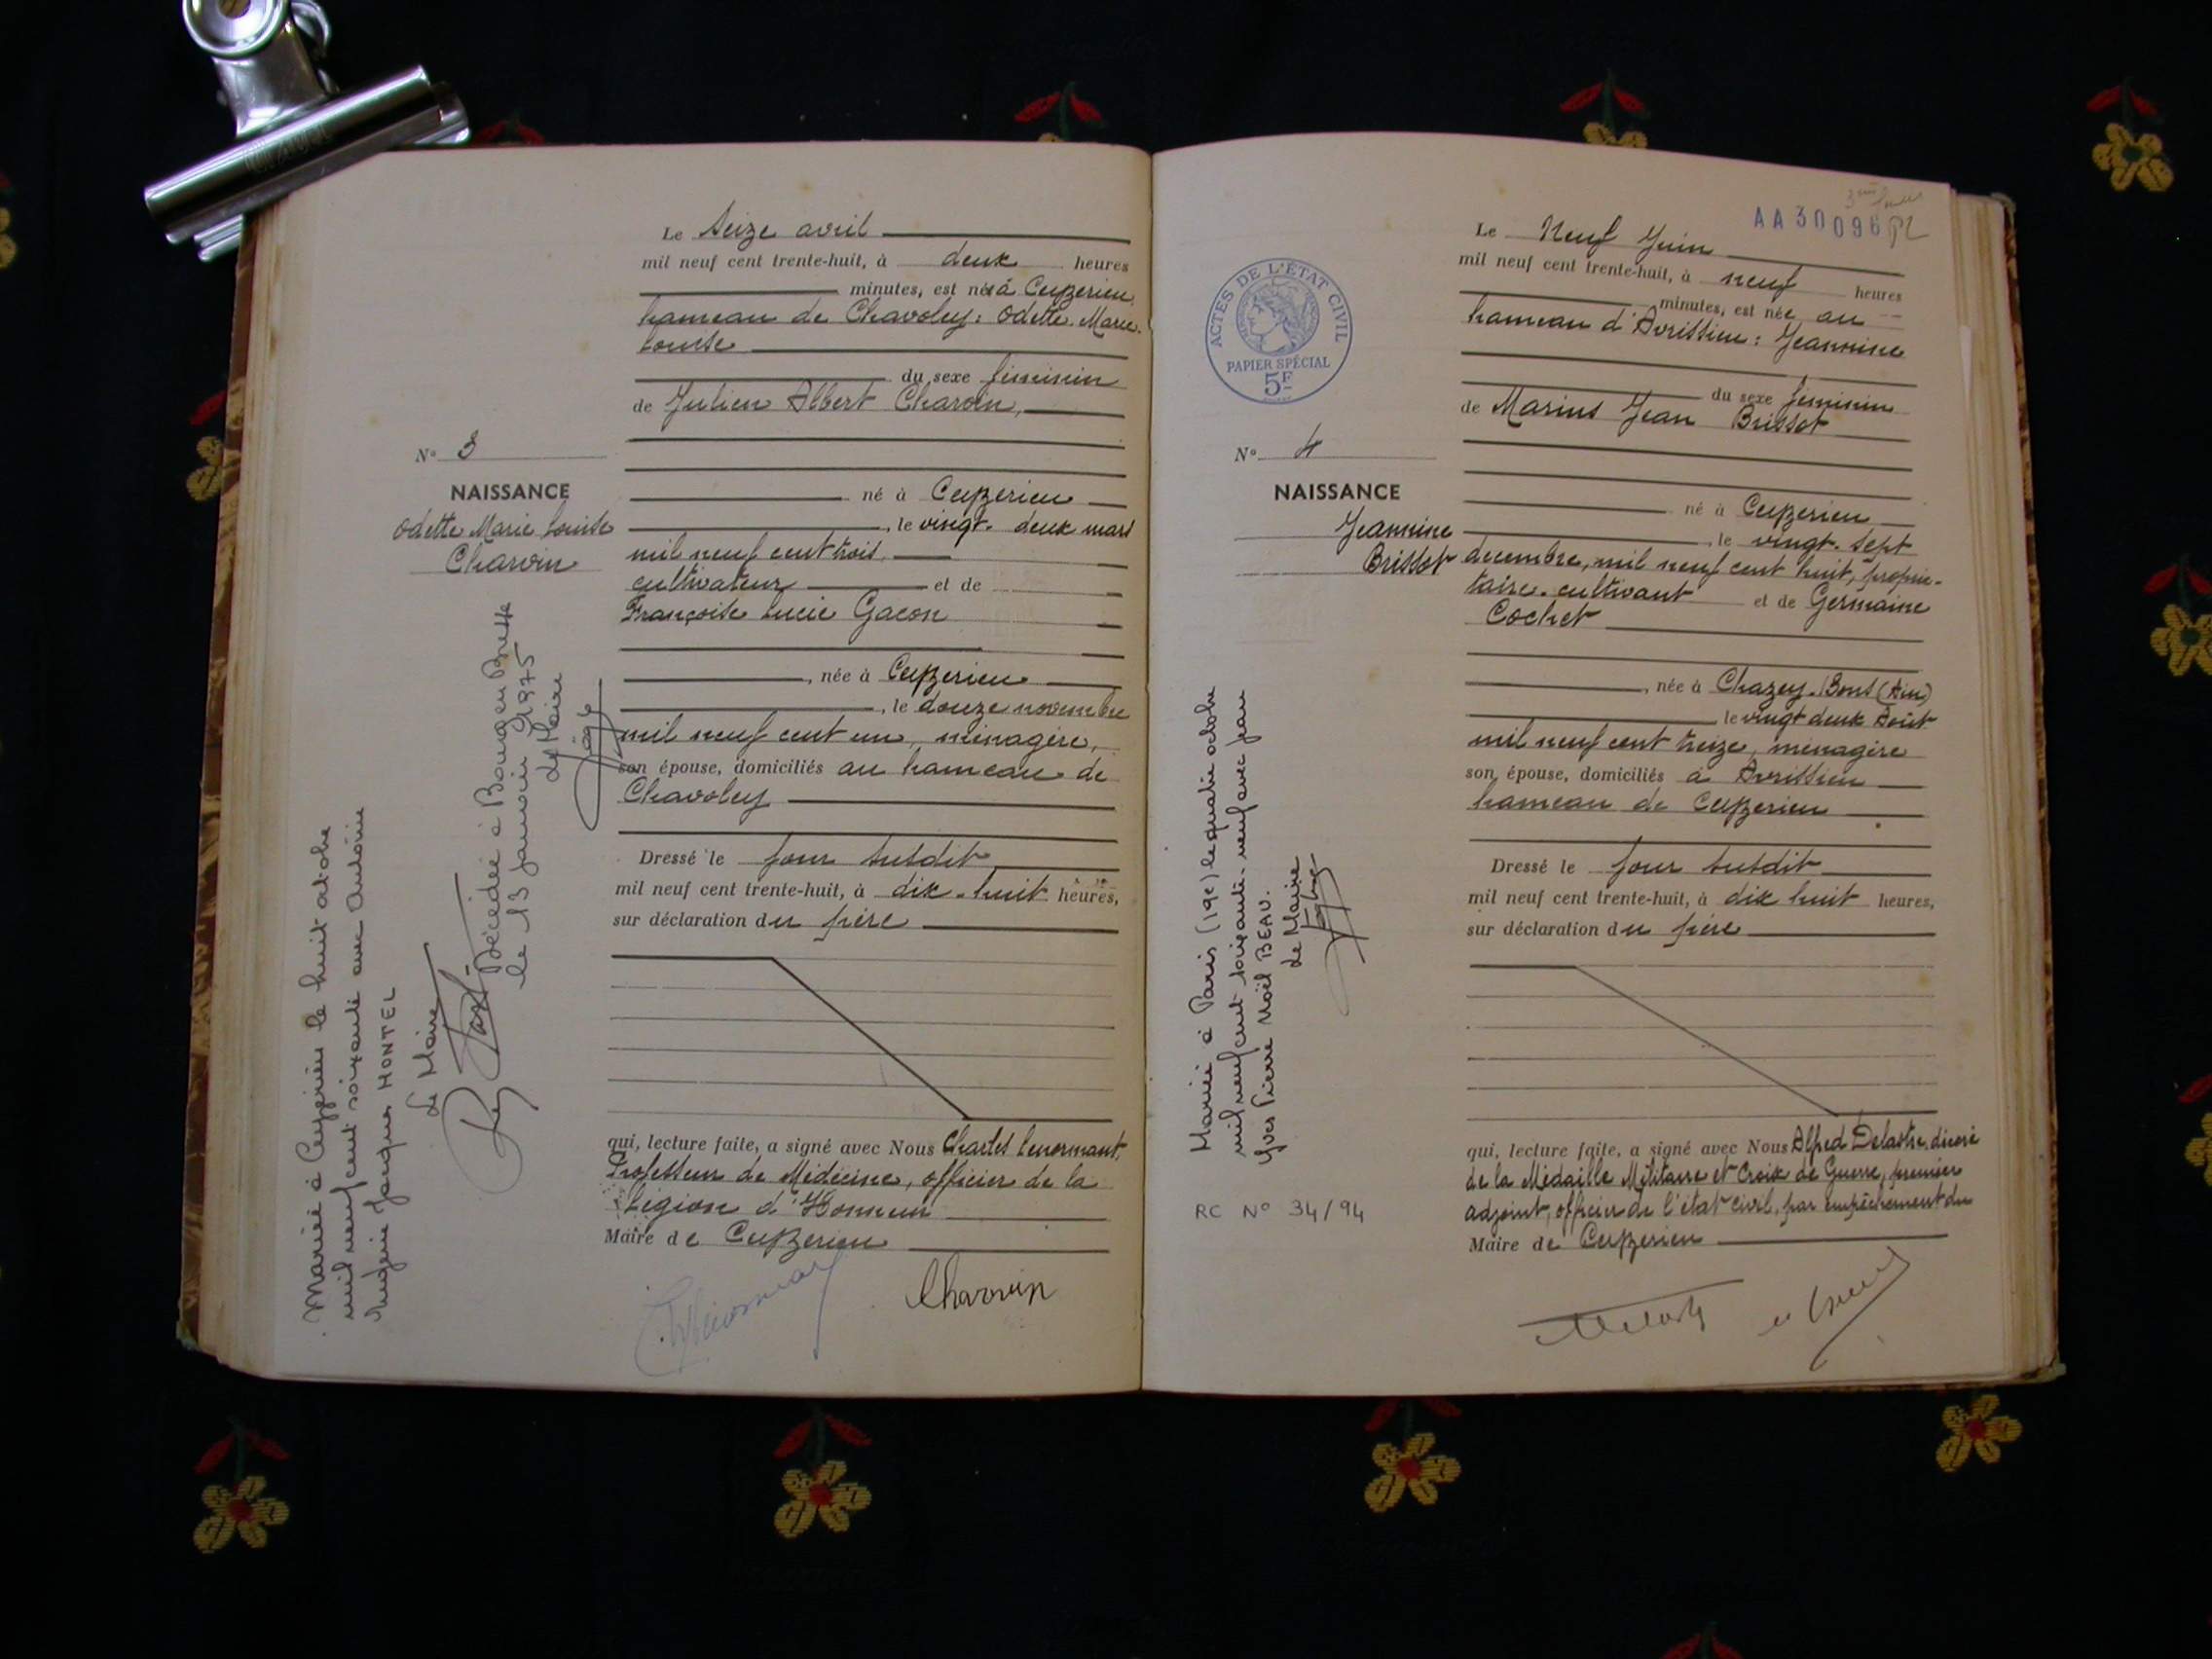 Le Seize avril
mil neuf cent trente-huit, à deux heures
minutes, est née à Ceyzerieu,
hameau de Chavoley: Odette. Marie.
Louise
du sexe féminin
de Julien Albert Charvin,
né à Ceyzerieu
, le vingt-deux mars
mil neuf cent trois
cultivateur et de
Françoise Lucie Gacon
, née à Ceyzerieu
, le douze novembre
mil neuf cent un, ménagère,
son épouse, domiciliés au hameau de
Chavoley
Dressé le jour susdit
mil neuf cent trente-huit, à dix-huit heures,
sur déclaration du père
qui, lecture faite, a signé avec Nous Charles Lenormant,
Professeur de Médecine, officier de la
Légion d'Honneur
Maire de Ceyzerieu
Charvin
No 3
NAISSANCE
Odette Marie Louise
Charvin
Mariée à Ceyzérieu le huit octobre
mil neuf cent soixante avec Antoine
Eugène Jacques MONTEL
Le Maire
Décédée à Bourg en Bresse
le 13 janvier 1975
Le Maire
AA30096
Le Neuf Juin
mil neuf cent trente-huit, à neuf heures
minutes, est née au
hameau d'Avrissieu: Jeannine
du sexe féminin
de Marius Jean Brissot
né à Ceyzerieu
, le vingt-sept
décembre, mil neuf cent huit, proprié-
taire-cultivant et de Germaine
Cochet
, née à Chazey-Bons (Ain)
le vingt deux Août
mil neuf cent treize, ménagère
son épouse, domiciliés à Avrissieu
hameau de Ceyzerieu
Dressé le jour susdit
mil neuf cent trente-huit, à dix huit heures,
sur déclaration du père
qui, lecture faite, a signé avec Nous Alfred Delastre, décoré
de la Médaille Militaire et Croix de Guerre, premier
adjoint, officier de l'état civil, par empêchement du
Maire de Ceyzerieu
ACTES DE L'ÉTAT CIVIL
PAPIER SPÉCIAL
5F
No 4
NAISSANCE
Jeannine
Brissot
Mariée à Paris (19e) le quatre octobre
mil neuf cent soixante-neuf avec Jean
Yves Pierre Noël BEAU.
Le Maire
RC No 34/94